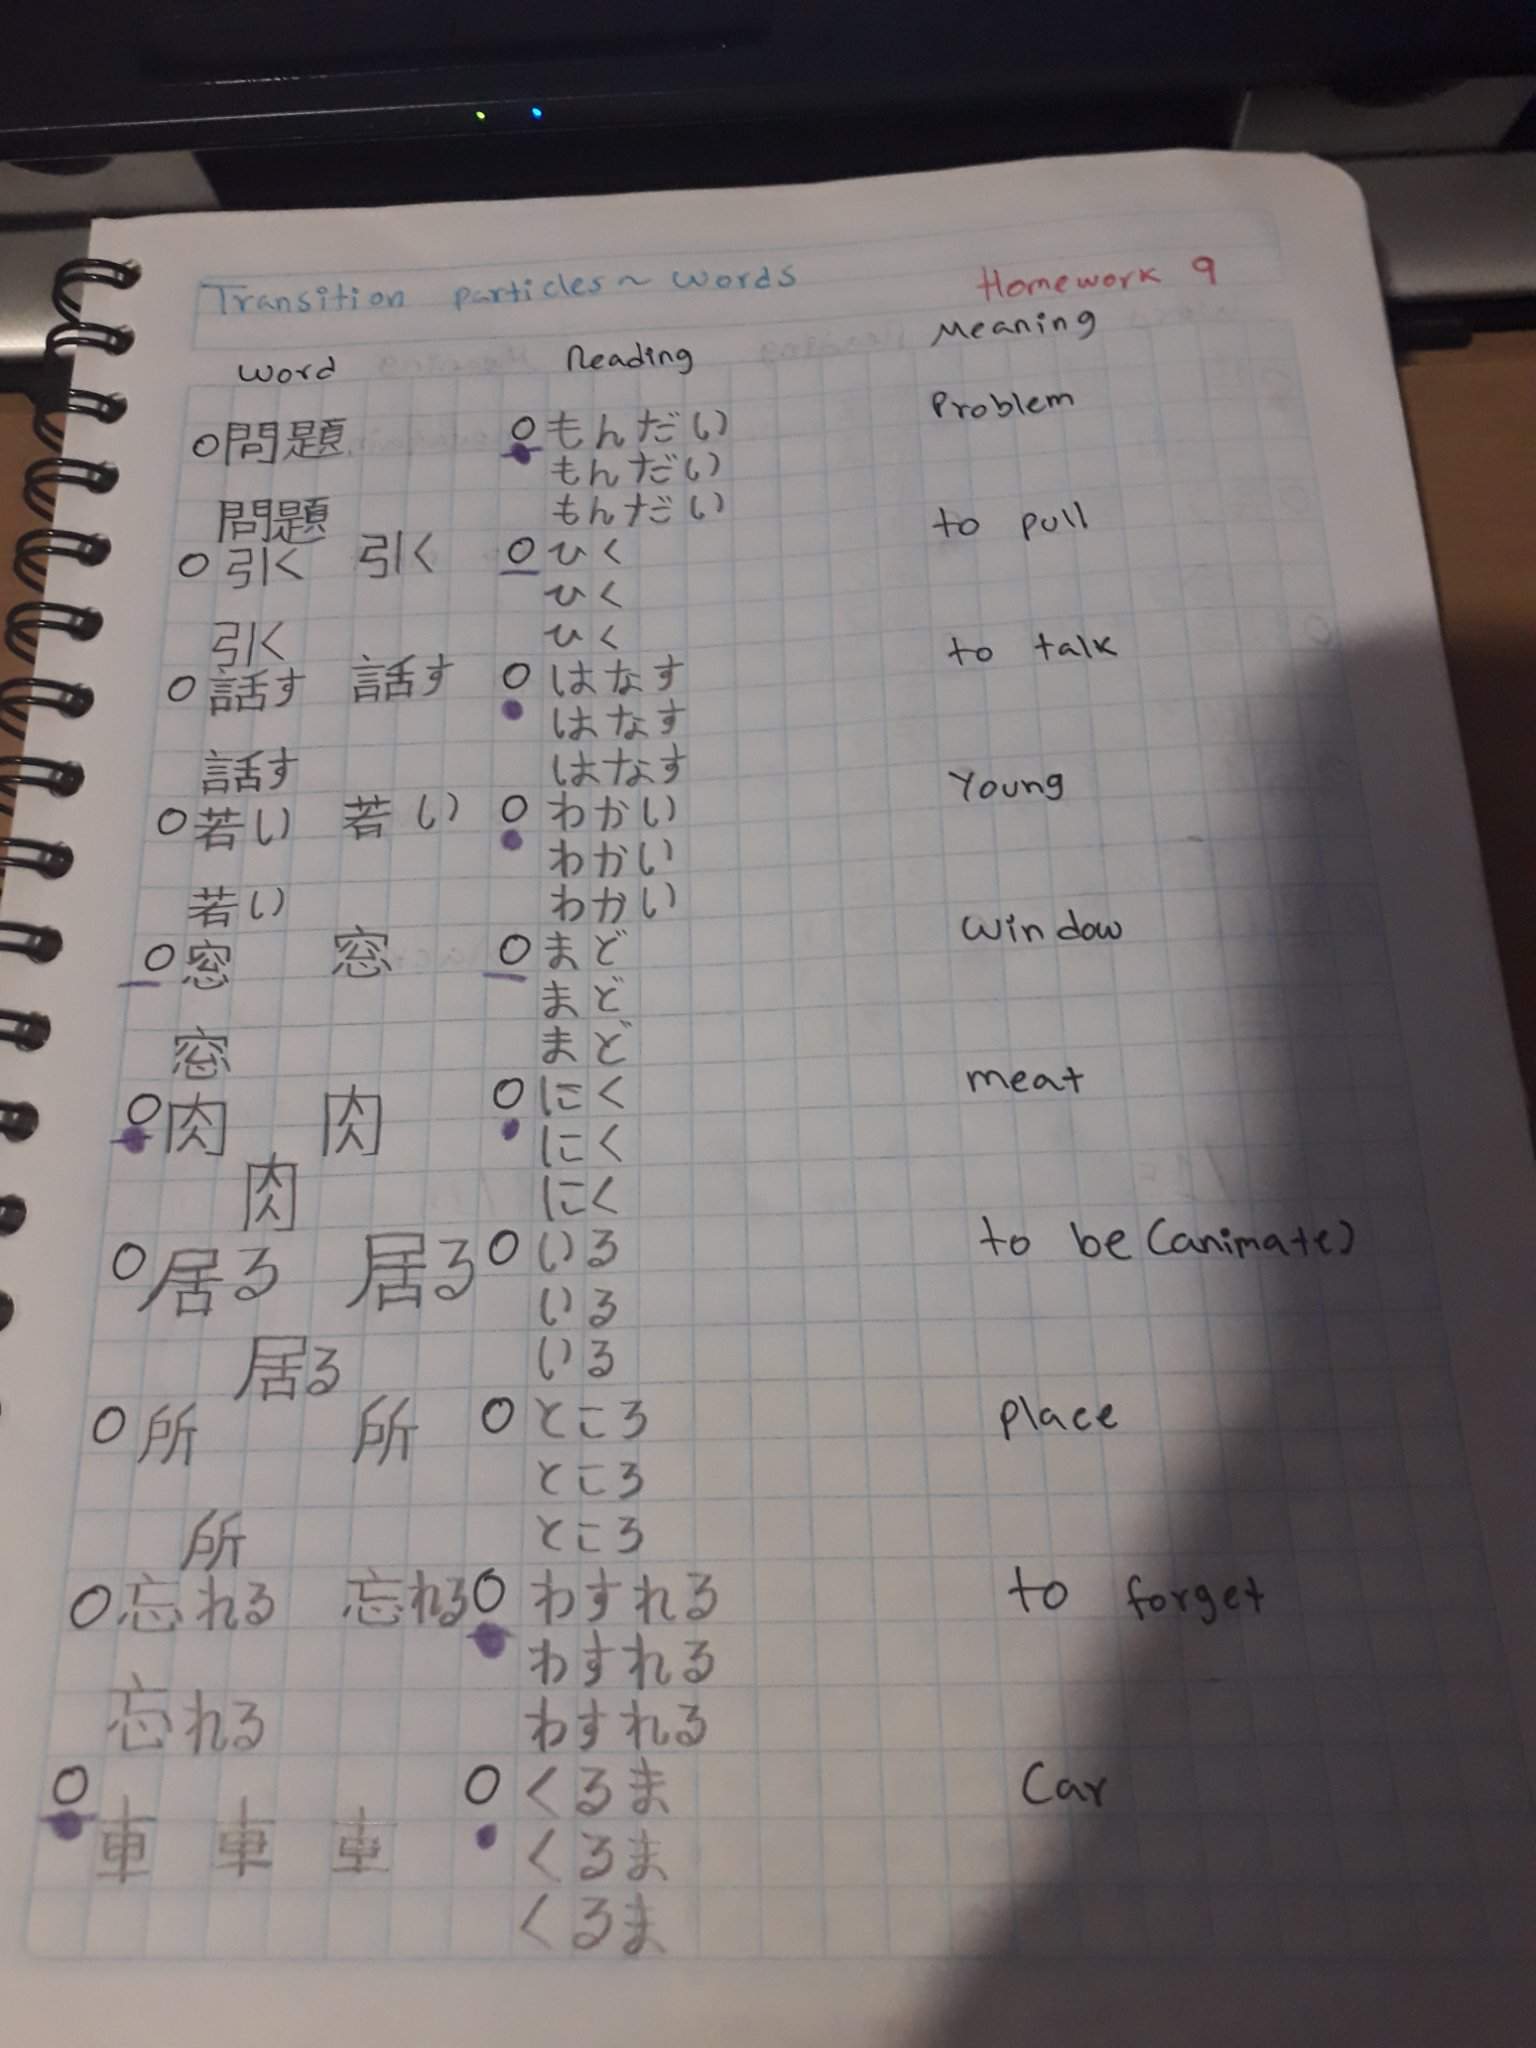 Transition particles ~ words Homework 9
word Reading Meaning
○問題 ○もんだい Problem
もんだい
問題 もんだい
○引く 引く ○ひく to pull
ひく
引く ひく
○話す 話す ○はなす to talk
はなす
話す はなす
○若い 若い ○わかい Young
わかい
若い わかい
○窓 窓 ○まど window
まど
窓 まど
○肉 肉 ○にく meat
にく
肉 にく
○居る 居る ○いる to be (animate)
いる
居る いる
○所 所 ○ところ place
ところ
所 ところ
○忘れる 忘れる ○わすれる to forget
わすれる
忘れる わすれる
○車 車 車 ○くるま Car
くるま
くるま